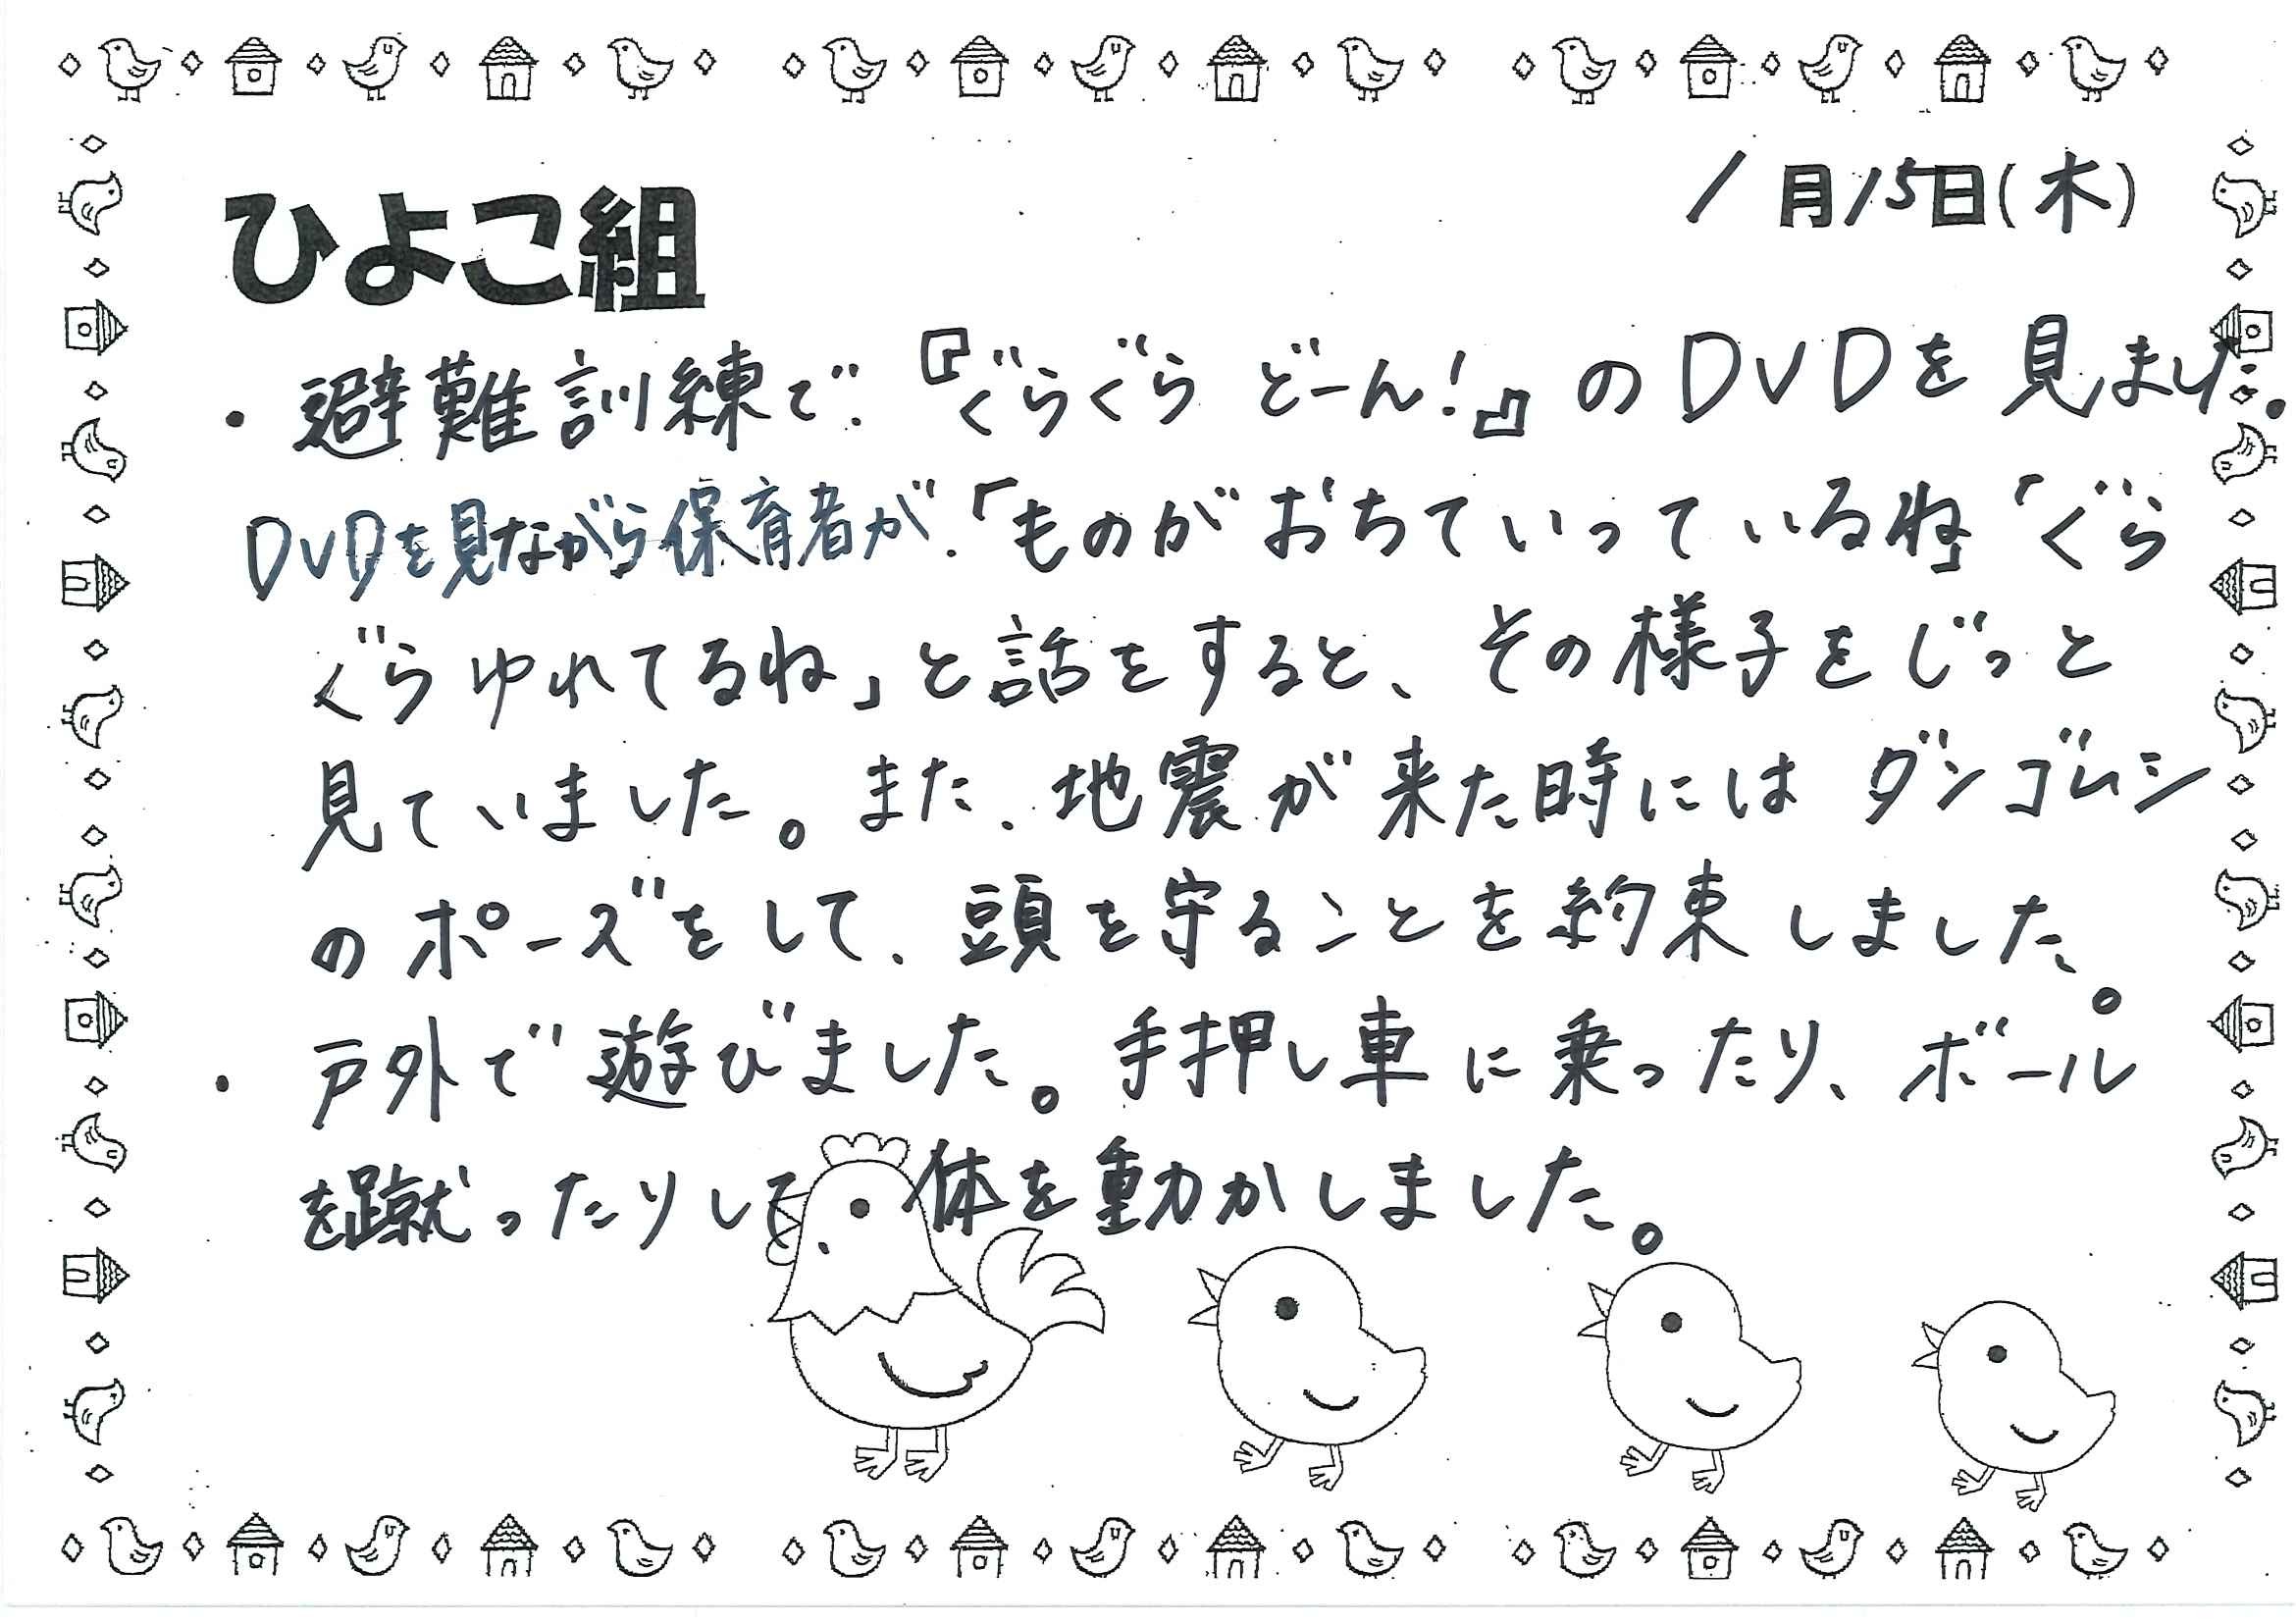 1月15日(木)
ひよこ組
・避難訓練で、『ぐらぐら どーん!』のDVDを見ました。
DVDを見ながら保育者が、「ものがおちていっているね」「ぐら
ぐらゆれてるね」と話をすると、その様子をじっと
見ていました。また、地震が来た時にはダンゴムシ
のポーズをして、頭を守ることを約束しました。
・戸外で遊びました。手押し車に乗ったり、ボール
を蹴ったりして、体を動かしました。